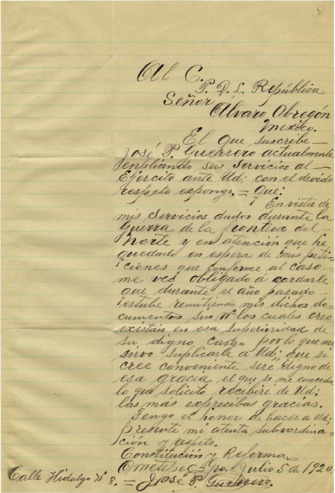 Al C.
P. D. L. República
Señor
Alvaro Obregón
Mexico.
El que suscribe
José P. Guerrero actualmente
ampliando sus servicios al
Ejército ante Ud; con el devido
respeto expongo = Que;
En vista de
mis servicios dados durante la
Guerra de la frontera del
Norte y en atención que he
quedado en espera de mis peti-
ciones que conforme al caso
me veo obligado á
que durante el año pasado
estube remitiendo mis dichos do-
cumentos sin Nº los cuales creo
existan en esa Superioridad de
su digno Cargo por lo que me
servo suplicarle a Ud; que si
cree conveniente sere digno de
esa gracia el que se me conceda
lo que solicito recibire de Ud;
las mas exprecivas gracias;
Tengo el honor de hacer a Ud;
presente mi atenta subordina-
ción y respeto.
Constitución y Reforma.
Ometepec = Gro. Julio 5 de 1920.
Calle Hidalgo Nº 8. = José P. Guerrero.